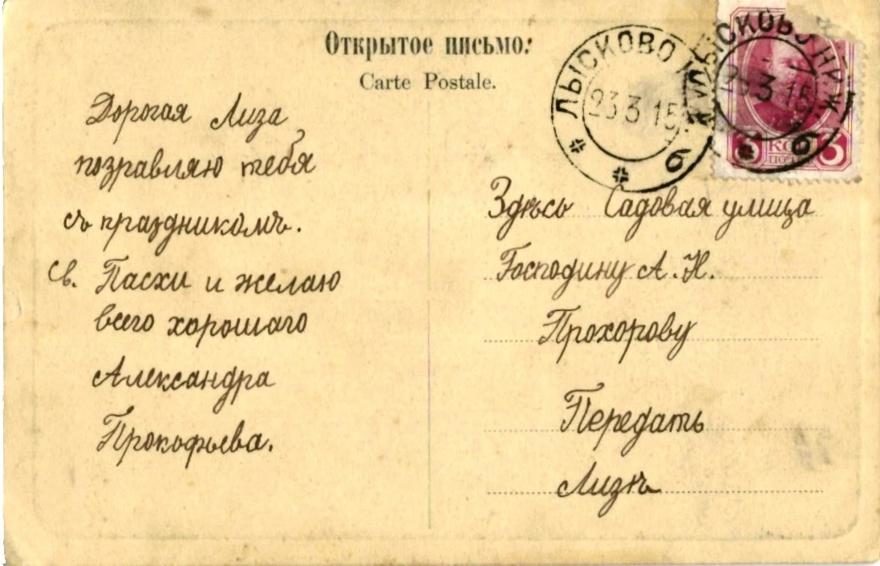 Открытое письмо.
Carte Postale.
ЛЫСКОВО
23 3 15
б
ЛЫСКОВО НИЖ
23 3 15
б
3 КОП 3
Дорогая Лиза
поздравляю тебя
съ праздникомъ.
Св. Пасхи и желаю
всего хорошаго
Александра
Прокофьева.
Здѣсь Садовая улица
Господину А. Н.
Прохорову
Передать
Лизѣ